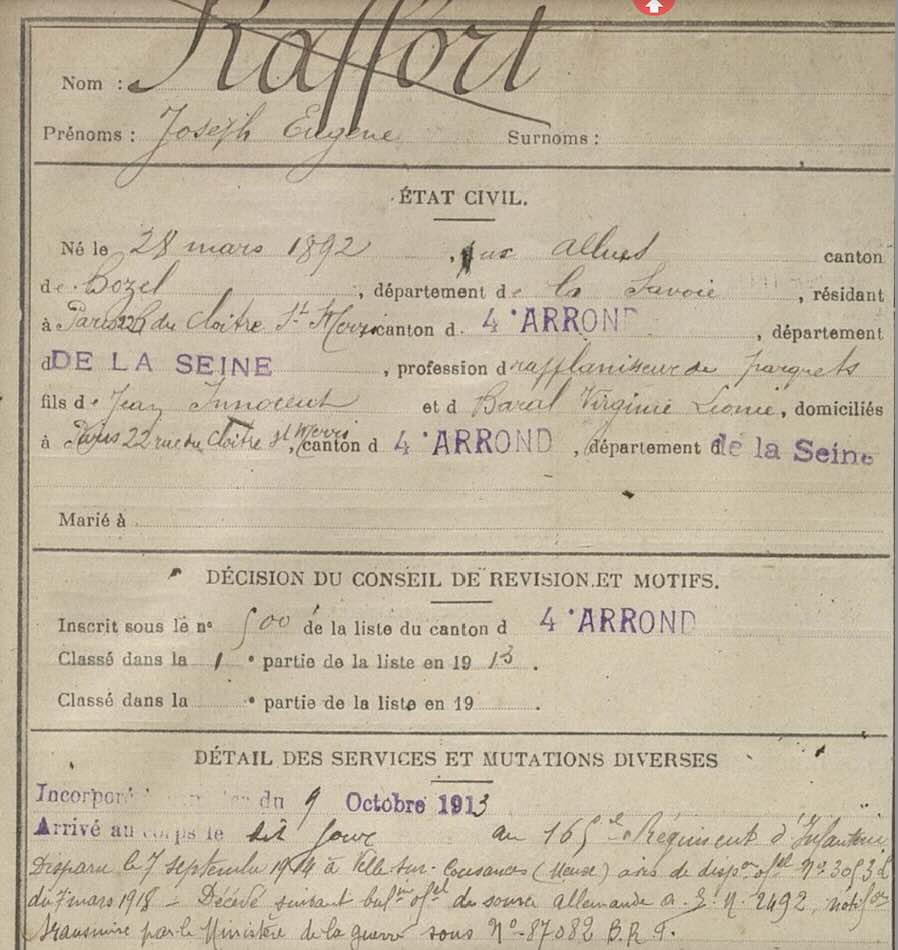 Nom : Raffort
Prénoms : Joseph Eugène Surnoms :
ÉTAT CIVIL.
Né le 28 mars 1892, aux Allues canton
de Bozel, département de la Savoie, résidant
à Paris 22 R du Cloître St Merri canton d. 4e ARROND, département
d DE LA SEINE, profession d rafflaniseur de parquets
fils de Jean Innocent et d Baral Virginie Léonie, domiciliés
à Paris 22 rue du Cloître St Merri, canton d 4e ARROND, département d de la Seine
Marié à
DÉCISION DU CONSEIL DE REVISION ET MOTIFS.
Inscrit sous le n° 500 de la liste du canton d 4e ARROND
Classé dans la 1 e partie de la liste en 1913.
Classé dans la e partie de la liste en 19 .
DÉTAIL DES SERVICES ET MUTATIONS DIVERSES
Incorporé du 9 Octobre 1913
Arrivé au corps le dit jour au 165e Régiment d'Infanterie
Disparu le 7 septembre 1914 à Ville-sur-Cousances (Meuse) avis de dispon offiel N°
du 7 mars 1918 - Décédé suivant offel de source allemande 2492,
transmise par le Ministère de la guerre sous N° 87082 B.R.